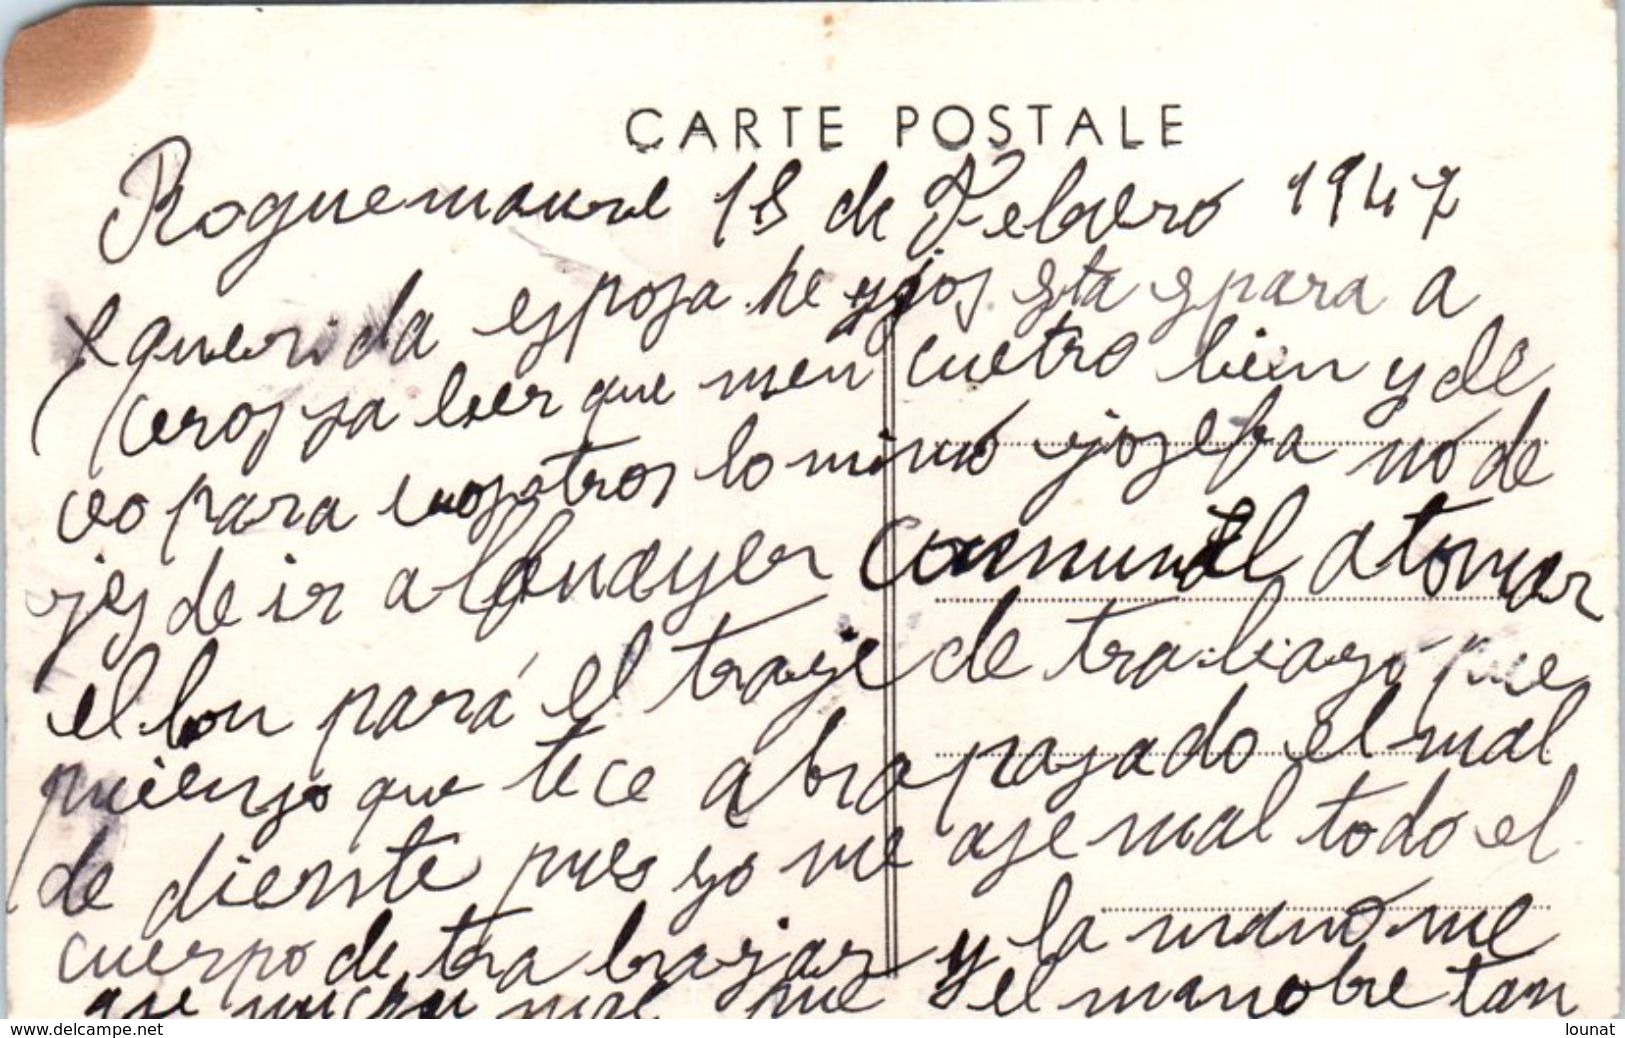 CARTE POSTALE
Roquemaure 18 de Febrero 1947
querida esposa he yjos esta es para a
ceros sa ber que men cuetro bien y de
ceo para vosotros lo mimo josefa no de
jes de ir al comunal a tomar
el bon pará el traje de trabajo pue
pienso que tece abra pasado el mal
de diente pues yo me ase mal todo el
cuerpo de tra bajar y la mano me
ase mucho mal que el manobre tan
www.delcampe.net
lounat